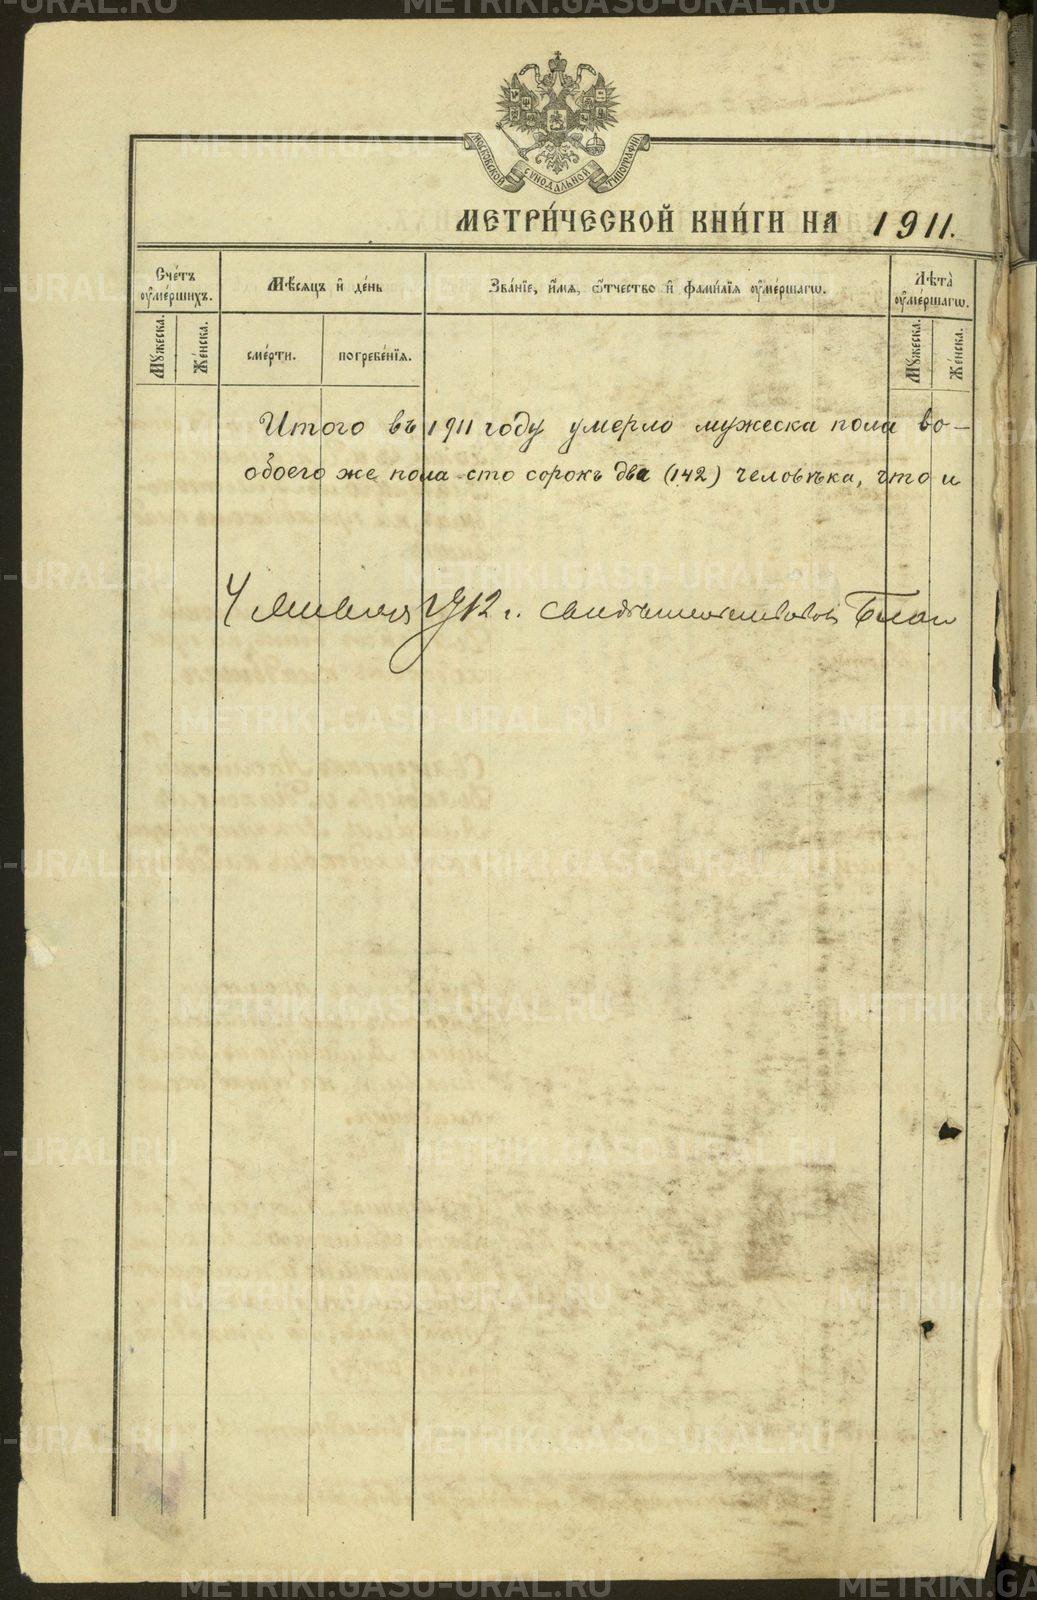 МОСКОВСКОЙ СУНОДАЛЬНОЙ ТИПОГРАФІИ
МЕТРИ́ЧЕСКОЙ КНИ́ГИ НА 1911.
Сче́тъ ᲂу҆ме́ршихъ.
Мѣ́сяцъ и҆ де́нь
Зва́нїе, и҆́мя, ѻ҆́тчество и҆ фами́лїя ᲂу҆ме́ршагѡ.
Лѣта̀ ᲂу҆ме́ршагѡ.
Мꙋ́жеска.
Же́нска.
сме́рти.
погребе́нїя.
Мꙋ́жеска.
Же́нска.
Итого въ 1911 году умерло мужеска пола во-
обоего же пола сто сорокъ два (142) человѣка, что и
4 января 1912 г.
METRIKI.GASO-URAL.RU